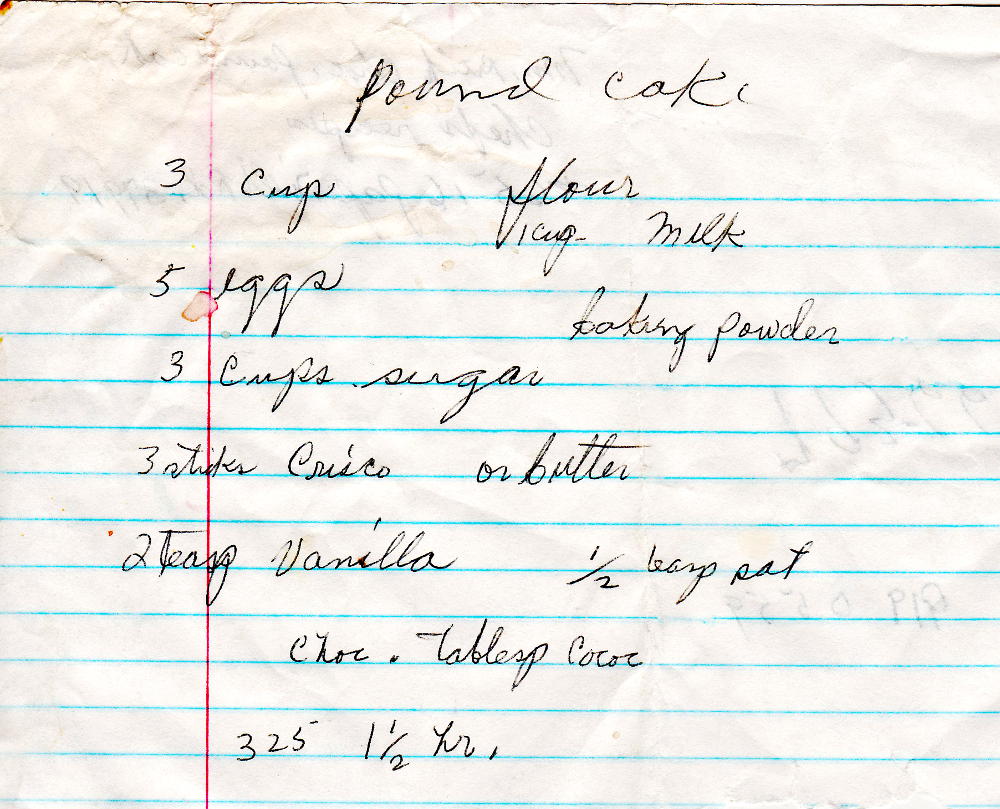 Pound Cake
3 Cup flour
1 cup Milk
5 eggs
baking powder
3 Cups sugar
3 sticks Crisco or butter
2 teasp Vanilla 1/2 teasp sat
Choc. Tablesp Cococ
325 1 1/2 hr.